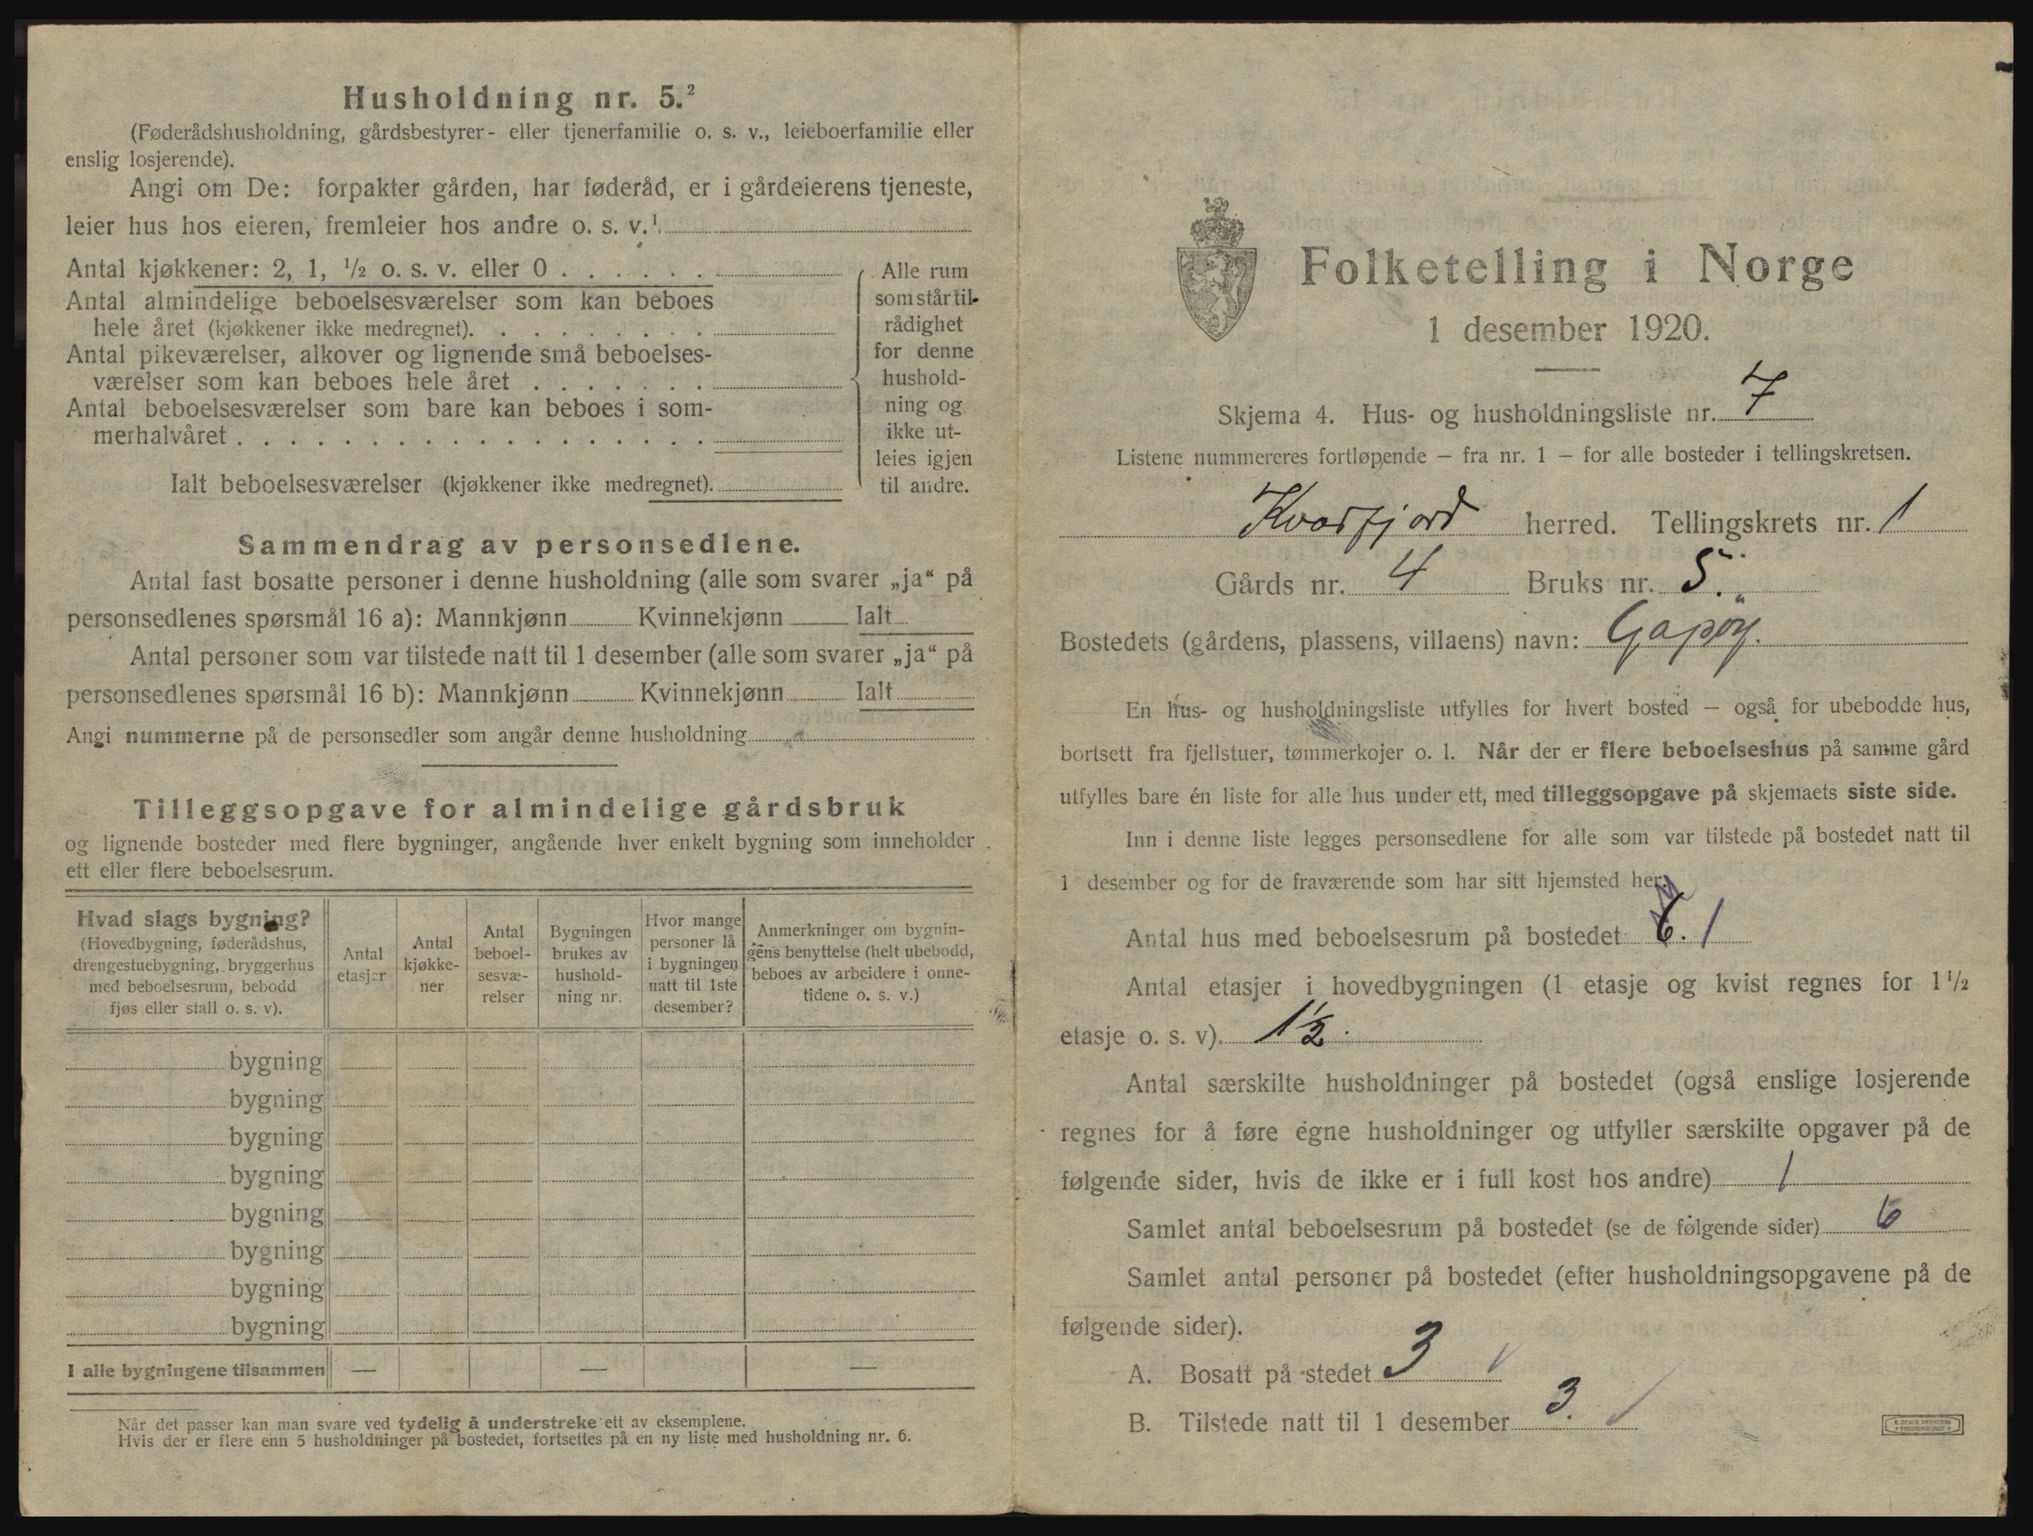 Husholdning nr. 5.²
(Føderådshusholdning, gårdsbestyrer- eller tjenerfamilie o. s. v., leieboerfamilie eller
enslig losjerende).
Angi om De: forpakter gården, har føderåd, er i gårdeierens tjeneste,
leier hus hos eieren, fremleier hos andre o. s. v.¹
Antal kjøkkener: 2, 1, ½ o. s. v. eller 0 . . . . . .
Antal almindelige beboelsesværelser som kan beboes
hele året (kjøkkener ikke medregnet). . . . . . . . .
Antal pikeværelser, alkover og lignende små beboelses-
værelser som kan beboes hele året . . . . . . .
Antal beboelsesværelser som bare kan beboes i som-
merhalvåret . . . . . . . . . . . . . . . . . .
Ialt beboelsesværelser (kjøkkener ikke medregnet).
Alle rum
som står til-
rådighet
for denne
hushold-
ning og
ikke ut-
leies igjen
til andre.
Sammendrag av personsedlene.
Antal fast bosatte personer i denne husholdning (alle som svarer „ja“ på
personsedlenes spørsmål 16 a): Mannkjønn Kvinnekjønn Ialt
Antal personer som var tilstede natt til 1 desember (alle som svarer „ja“ på
personsedlenes spørsmål 16 b): Mannkjønn Kvinnekjønn Ialt
Angi nummerne på de personsedler som angår denne husholdning
Tilleggsopgave for almindelige gårdsbruk
og lignende bosteder med flere bygninger, angående hver enkelt bygning som inneholder
ett eller flere beboelsesrum.
Hvad slags bygning?
(Hovedbygning, føderådshus,
drengestuebygning, bryggerhus
med beboelsesrum, bebodd
fjøs eller stall o. s. v).
Antal
etasjer
Antal
kjøkke-
ner
Antal
beboel-
sesvæ-
relser
Bygningen
brukes av
hushold-
ning nr.
Hvor mange
personer lå
i bygningen
natt til 1ste
desember?
Anmerkninger om bygnin-
gens benyttelse (helt ubebodd,
beboes av arbeidere i onne-
tidene o. s. v.)
bygning
bygning
bygning
bygning
bygning
bygning
bygning
bygning
I alle bygningene tilsammen — — —
Når det passer kan man svare ved tydelig å understreke ett av eksemplene.
Hvis der er flere enn 5 husholdninger på bostedet, fortsettes på en ny liste med husholdning nr. 6.
Folketelling i Norge
1 desember 1920.
Skjema 4. Hus- og husholdningsliste nr. 7
Listene nummereres fortløpende — fra nr. 1 — for alle bosteder i tellingskretsen.
Kvæfjord herred. Tellingskrets nr. 1
Gårds nr. 4 Bruks nr. 5.
Bostedets (gårdens, plassens, villaens) navn: Gapöy.
En hus- og husholdningsliste utfylles for hvert bosted — også for ubebodde hus,
bortsett fra fjellstuer, tømmerkojer o. l. Når der er flere beboelseshus på samme gård
utfylles bare én liste for alle hus under ett, med tilleggsopgave på skjemaets siste side.
Inn i denne liste legges personsedlene for alle som var tilstede på bostedet natt til
1 desember og for de fraværende som har sitt hjemsted her.
Antal hus med beboelsesrum på bostedet 6. 1
Antal etasjer i hovedbygningen (1 etasje og kvist regnes for 1½
etasje o. s. v). 1½.
Antal særskilte husholdninger på bostedet (også enslige losjerende
regnes for å føre egne husholdninger og utfyller særskilte opgaver på de
følgende sider, hvis de ikke er i full kost hos andre) 1
Samlet antal beboelsesrum på bostedet (se de følgende sider) 6
Samlet antal personer på bostedet (efter husholdningsopgavene på de
følgende sider).
A. Bosatt på stedet 3
B. Tilstede natt til 1 desember 3.